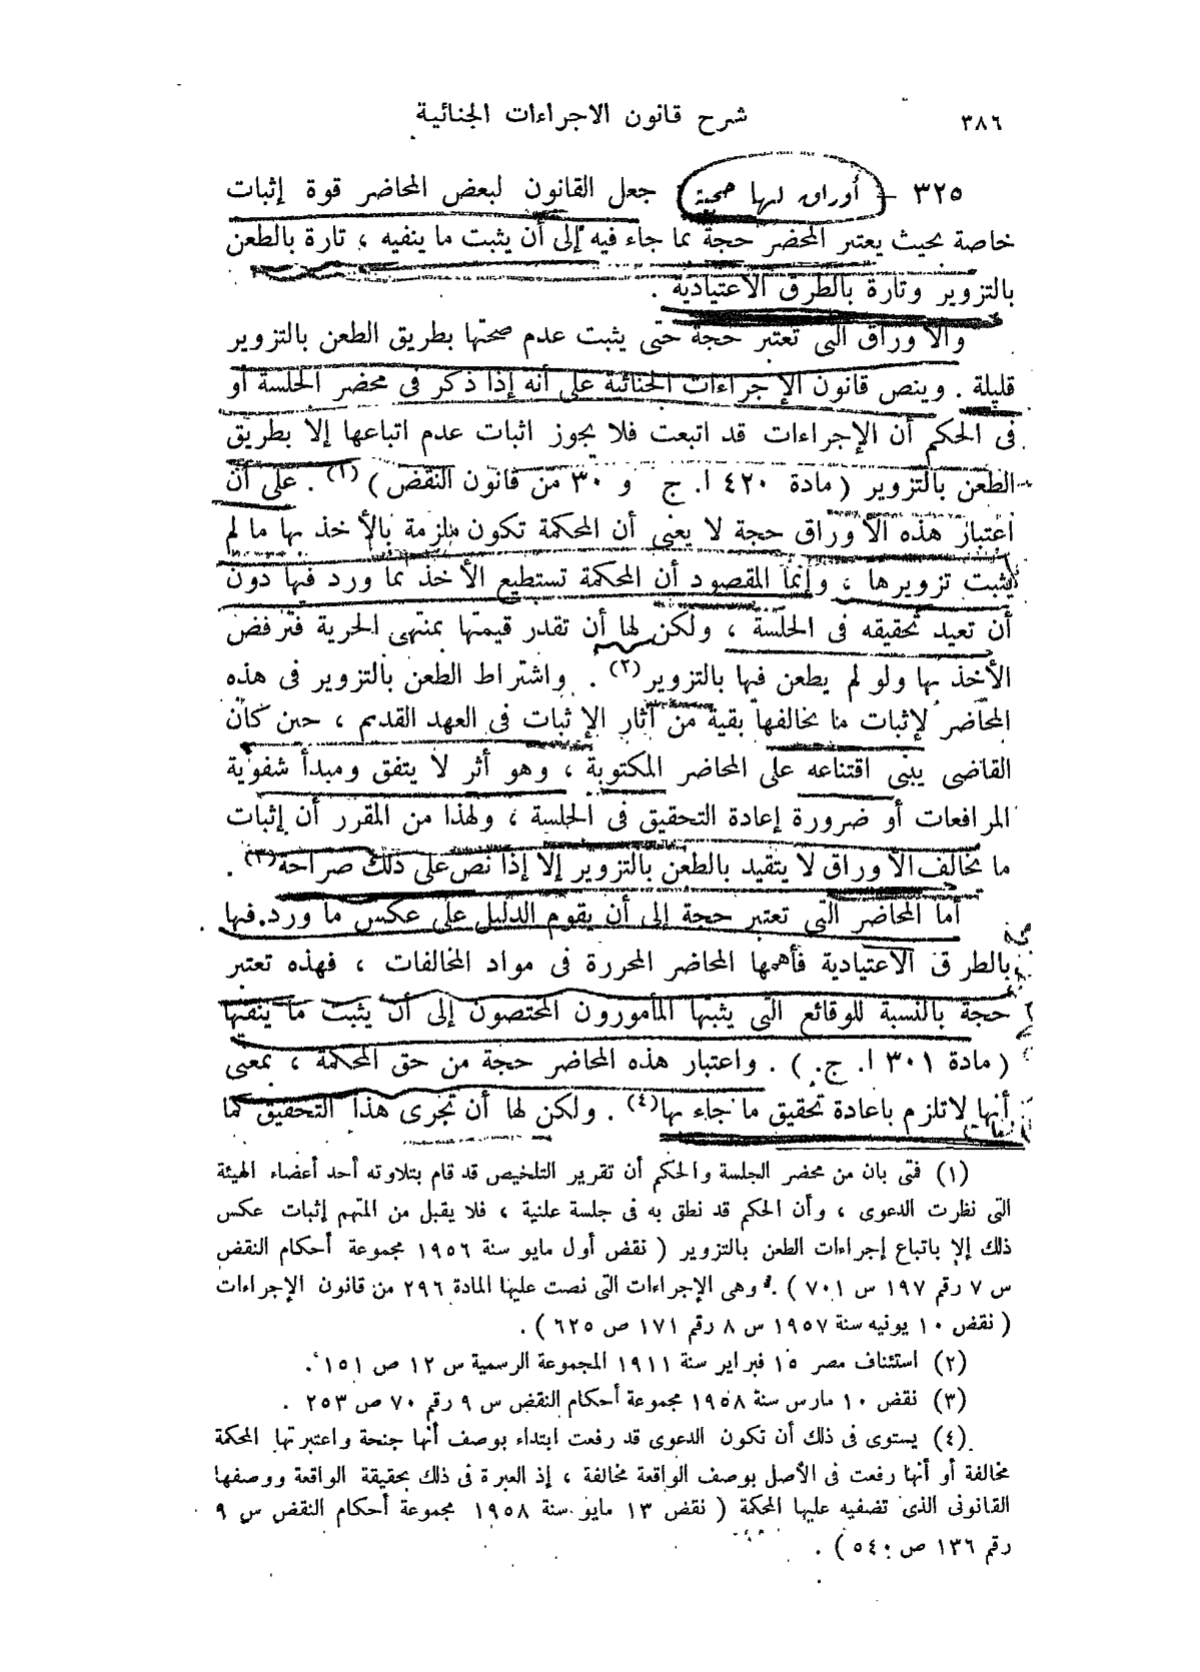 ٣٨٦
شرح قانون الاجراءات الجنائية
٣٢٥ — أوراق لها حجية جعل القانون لبعض المحاضر قوة إثبات
خاصة بحيث يعتبر المحضر حجة بما جاء فيه إلى أن يثبت ما ينفيه ، تارة بالطعن
بالتزوير وتارة بالطرق الاعتيادية .
والأوراق التى تعتبر حجة حتى يثبت عدم صحتها بطريق الطعن بالتزوير
قليلة . وينص قانون الإجراءات الجنائية على أنه إذا ذكر فى محضر الجلسة أو
فى الحكم أن الإجراءات قد اتبعت فلا يجوز اثبات عدم اتباعها إلا بطريق
الطعن بالتزوير ( مادة ٤٢٠ ا. ج و ٣٠ من قانون النقض ) (١) . على أن
اعتبار هذه الأوراق حجة لا يعنى أن المحكمة تكون ملزمة بالأخذ بها ما لم
يثبت تزويرها ، وإنما المقصود أن المحكمة تستطيع الأخذ بما ورد فيها دون
أن تعيد تحقيقه فى الجلسة ، ولكن لها أن تقدر قيمتها بمنتهى الحرية فترفض
الأخذ بها ولو لم يطعن فيها بالتزوير (٢) . واشتراط الطعن بالتزوير فى هذه
المحاضر لإثبات ما يخالفها بقية من آثار الإثبات فى العهد القديم ، حين كان
القاضى يبنى اقتناعه على المحاضر المكتوبة ، وهو أثر لا يتفق ومبدأ شفوية
المرافعات أو ضرورة إعادة التحقيق فى الجلسة ، ولهذا من المقرر أن إثبات
ما يخالف الأوراق لا يتقيد بالطعن بالتزوير إلا إذا نص على ذلك صراحة (٣) .
أما المحاضر التى تعتبر حجة إلى أن يقوم الدليل على عكس ما ورد فيها
بالطرق الاعتيادية فأهمها المحاضر المحررة فى مواد المخالفات ، فهذه تعتبر
حجة بالنسبة للوقائع التى يثبتها المأمورون المختصون إلى أن يثبت ما ينفيها
( مادة ٣٠١ ا. ج. ) . واعتبار هذه المحاضر حجة من حق المحكمة ، بمعنى
أنها لا تلزم باعادة تحقيق ما جاء بها (٤) . ولكن لها أن تجرى هذا التحقيق كما
(١) فتى بان من محضر الجلسة والحكم أن تقرير التلخيص قد قام بتلاوته أحد أعضاء الهيئة
التى نظرت الدعوى ، وأن الحكم قد نطق به فى جلسة علنية ، فلا يقبل من المتهم إثبات عكس
ذلك إلا باتباع إجراءات الطعن بالتزوير ( نقض أول مايو سنة ١٩٥٦ مجموعة أحكام النقض
س ٧ رقم ١٩٧ س ٧٠١ ) . وهى الإجراءات التى نصت عليها المادة ٢٩٦ من قانون الإجراءات
( نقض ١٠ يونيه سنة ١٩٥٧ س ٨ رقم ١٧١ ص ٦٢٥ ) .
(٢) استئناف مصر ١٥ فبراير سنة ١٩١١ المجموعة الرسمية س ١٢ ص ١٥١ .
(٣) نقض ١٠ مارس سنة ١٩٥٨ مجموعة أحكام النقض س ٩ رقم ٧٠ ص ٢٥٣ .
(٤) يستوى فى ذلك أن تكون الدعوى قد رفعت ابتداء بوصف أنها جنحة واعتبرتها المحكمة
مخالفة أو أنها رفعت فى الأصل بوصف الواقعة مخالفة ، إذ العبرة فى ذلك بحقيقة الواقعة ووصفها
القانونى الذى تضفيه عليها المحكمة ( نقض ١٣ مايو سنة ١٩٥٨ مجموعة أحكام النقض س ٩
رقم ١٣٦ ص ٥٤٠ ) .